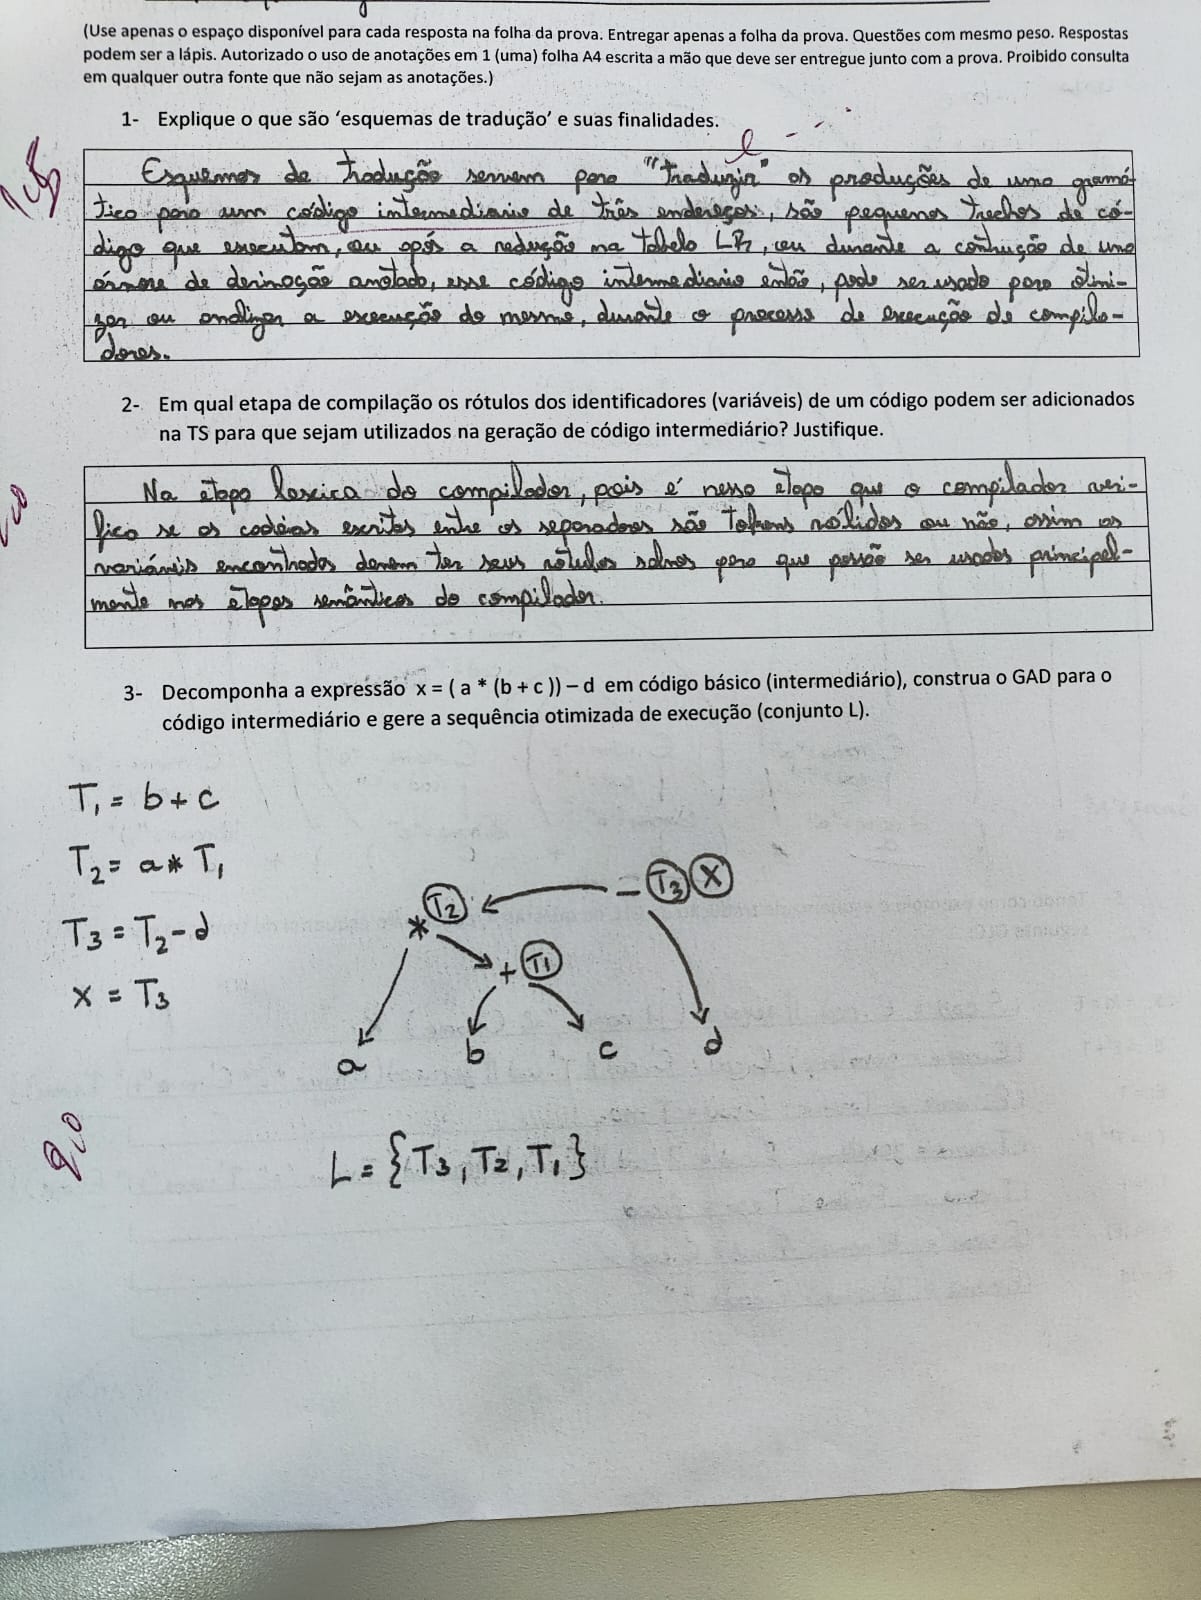 (Use apenas o espaço disponível para cada resposta na folha da prova. Entregar apenas a folha da prova. Questões com mesmo peso. Respostas
podem ser a lápis. Autorizado o uso de anotações em 1 (uma) folha A4 escrita a mão que deve ser entregue junto com a prova. Proibido consulta
em qualquer outra fonte que não sejam as anotações.)
1- Explique o que são ‘esquemas de tradução’ e suas finalidades.
1,5
Esquemas de tradução servem para "traduzir" as produções de uma gramá-
tica para um código intermediario de três endereços, são pequenos trechos de có-
digo que executam, ou após a redução na tabela LR, ou durante a contrução de uma
árvore de derivação anotada, esse código intermediario então, pode ser usado para otimi-
zar ou analizar a execução do mesmo, durante o processo de execução de compila-
dores.
2- Em qual etapa de compilação os rótulos dos identificadores (variáveis) de um código podem ser adicionados
na TS para que sejam utilizados na geração de código intermediário? Justifique.
Na etapa lexica do compilador, pois é nessa etapa que o compilador veri-
fica se os escritas entre os separadores são tokens válidos ou não, assim as
variáveis encontradas devem ter seus rótulos salvos para que possão ser usados principal-
mente nas etapas semânticas do compilador.
3- Decomponha a expressão x = ( a * (b + c )) – d em código básico (intermediário), construa o GAD para o
código intermediário e gere a sequência otimizada de execução (conjunto L).
T1 = b + c
T2 = a * T1
T3 = T2 - d
x = T3
- T3 X
* T2
+ T1
a b c d
2,0
L = {T3, T2, T1}